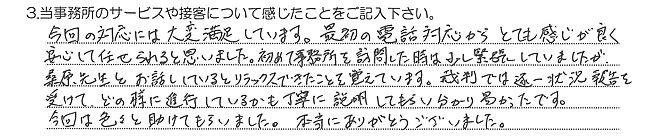 3.当事務所のサービスや接客について感じたことをご記入下さい。
今回の対応には大変満足しています。最初の電話対応からとても感じが良く
安心して任せられると思いました。初めて事務所を訪問した時は少し緊張していましたが
桑原先生とお話しているとリラックスできたことを覚えています。裁判では逐一状況報告を
受けて、どの様に進行しているかも丁寧に説明してもらい分かり易かったです。
今回は色々と助けてもらいました。本当にありがとうございました。